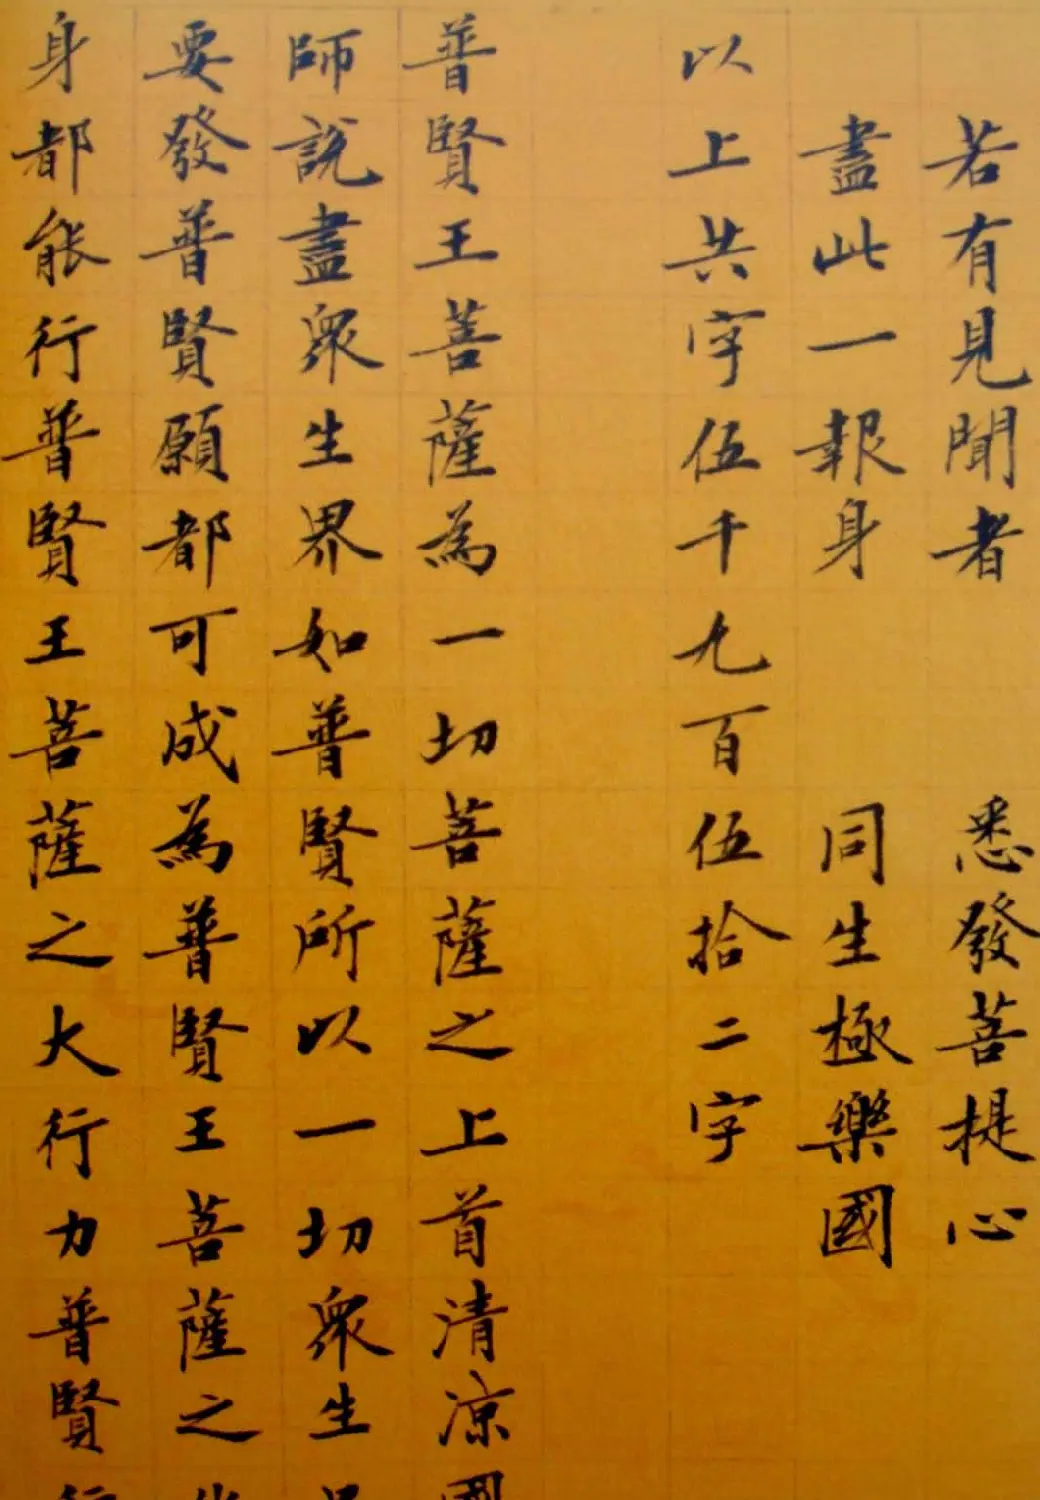 若有見聞者 悉發菩提心
盡此一報身 同生極樂國
以上共字伍千九百伍拾二字
普賢王菩薩為一切菩薩之上首清涼國
師說盡衆生界如普賢所以一切衆生
要發普賢願都可成為普賢王菩薩之
身都能行普賢王菩薩之大行力普賢行